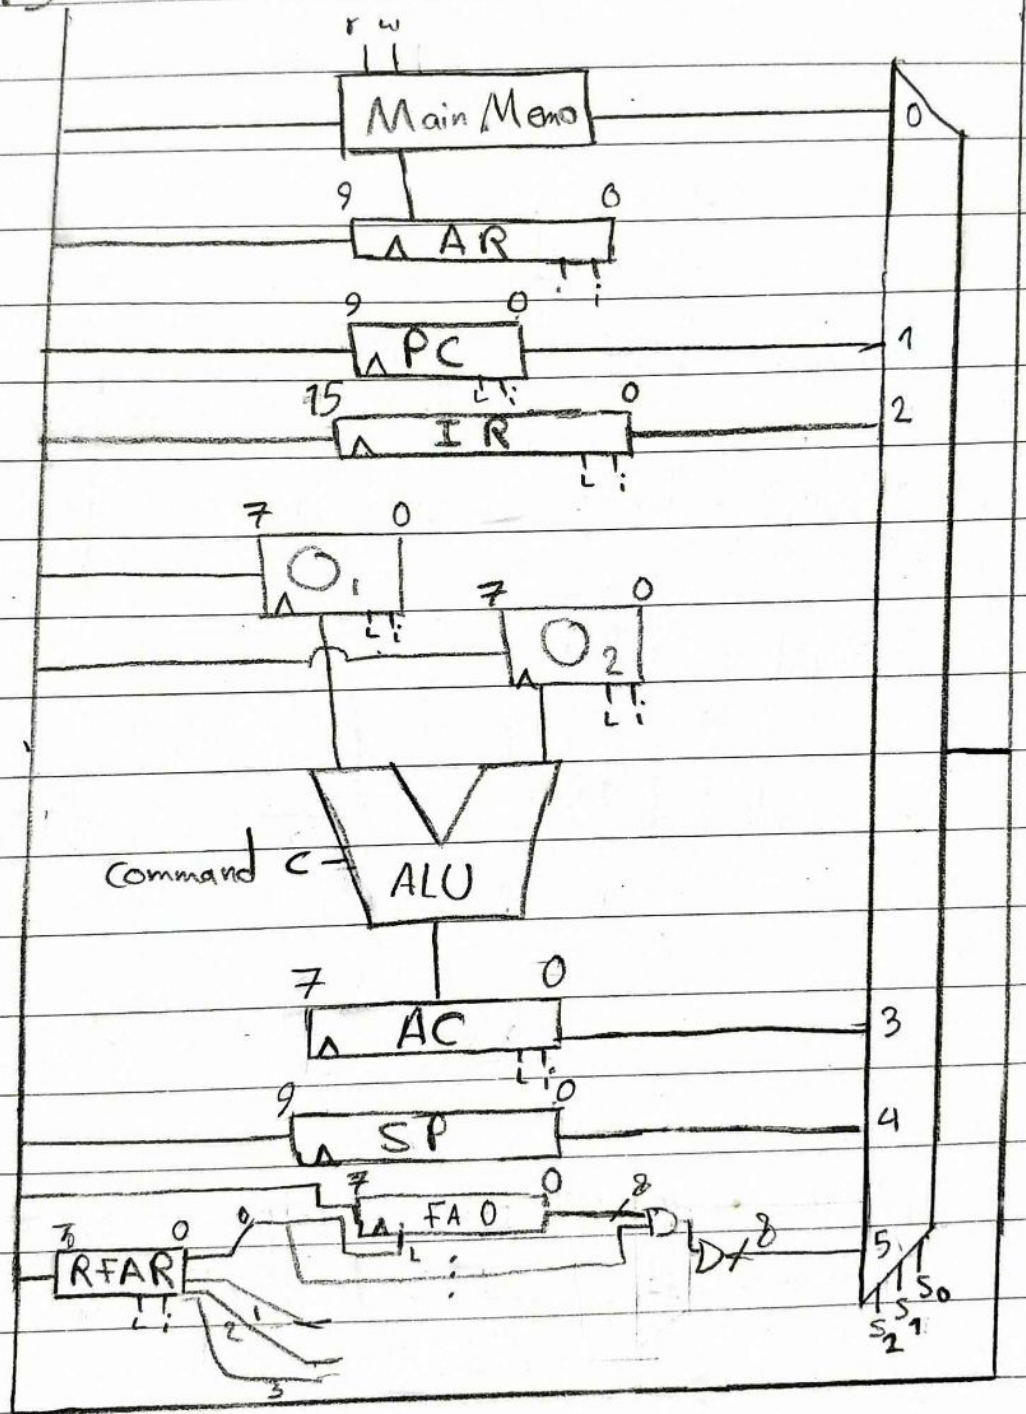 r w
Main Memo
0
9 0
AR
i
9 0
PC
1
L i
15 0
IR
2
L i
7 0
O1
L i
7 0
O2
L i
Command C
ALU
7 0
AC
3
L i
9 0
SP
4
7 0
FA0
8
L
3 0
0
RFAR
8
5
L i
1
2
3
S2 S1 S0